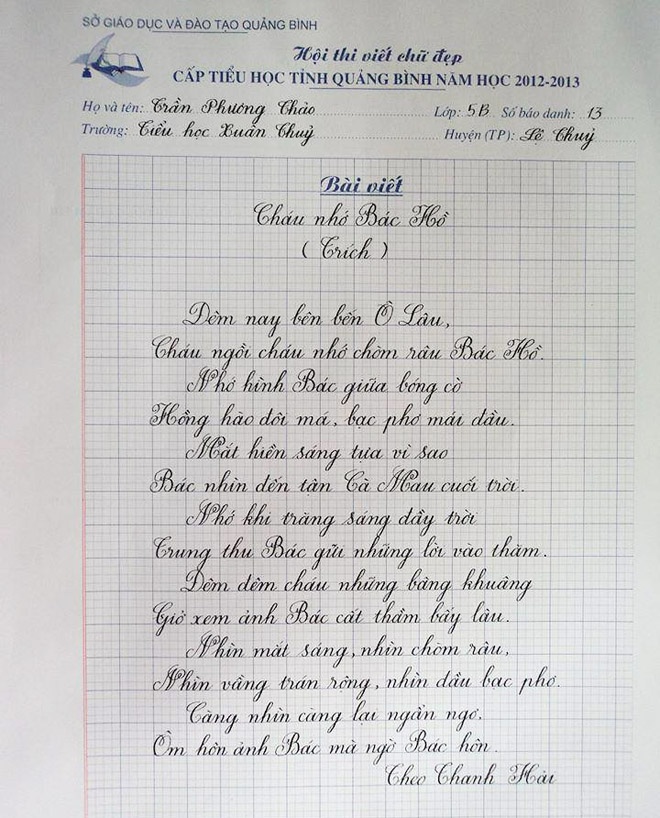 SỞ GIÁO DỤC VÀ ĐÀO TẠO QUẢNG BÌNH
Hội thi viết chữ đẹp
CẤP TIỂU HỌC TỈNH QUẢNG BÌNH NĂM HỌC 2012-2013
Họ và tên: Trần Phương Thảo Lớp: 5B Số báo danh: 13
Trường: Tiểu học Xuân Thuỷ Huyện (TP): Lệ Thuỷ
Bài viết
Cháu nhớ Bác Hồ
( Trích )
Đêm nay bên bến Ồ Lâu,
Cháu ngồi cháu nhớ chòm râu Bác Hồ.
Nhớ hình Bác giữa bóng cờ
Hồng hào đôi má, bạc phơ mái đầu.
Mắt hiền sáng tựa vì sao
Bác nhìn đến tận Cà Mau cuối trời.
Nhớ khi trăng sáng đầy trời
Trung thu Bác gửi những lời vào thăm.
Đêm đêm cháu những bâng khuâng
Giở xem ảnh Bác cất thầm bấy lâu.
Nhìn mắt sáng, nhìn chòm râu,
Nhìn vầng trán rộng, nhìn đầu bạc phơ.
Càng nhìn càng lại ngẩn ngơ,
Ôm hôn ảnh Bác mà ngờ Bác hôn.
Theo Thanh Hải